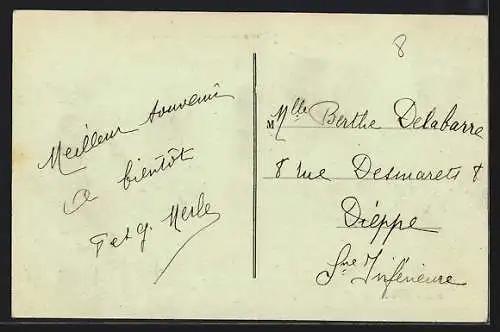 Meilleur souvenir
a bientôt
T et G. Merle
8
Mlle Berthe Delabarre
8 rue Desmarets 8
Dieppe
Sne Inférieure